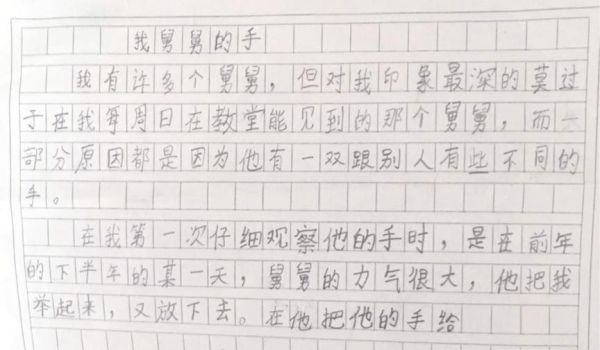 我舅舅的手
我有许多个舅舅，但对我印象最深的莫过
于在我每周日在教堂能见到的那个舅舅，而一
部分原因都是因为他有一双跟别人有些不同的
手。
在我第一次仔细观察他的手时，是在前年
的下半年的某一天，舅舅的力气很大，他把我
举起来，又放下去。在他把他的手给